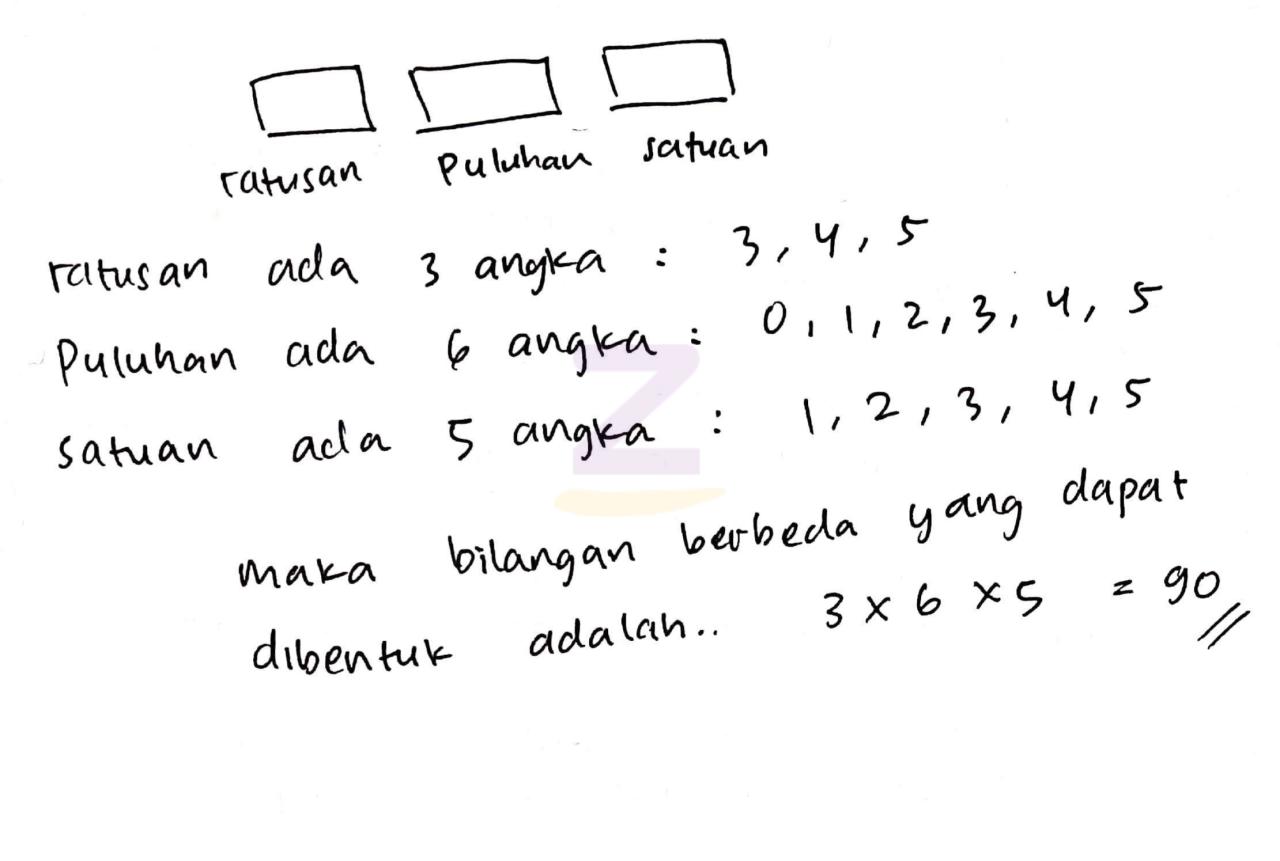 ratusan puluhan satuan
ratusan ada 3 angka : 3, 4, 5
Puluhan ada 6 angka : 0, 1, 2, 3, 4, 5
satuan ada 5 angka : 1, 2, 3, 4, 5
maka bilangan berbeda yang dapat
dibentuk adalah.. 3 x 6 x 5 = 90
Z